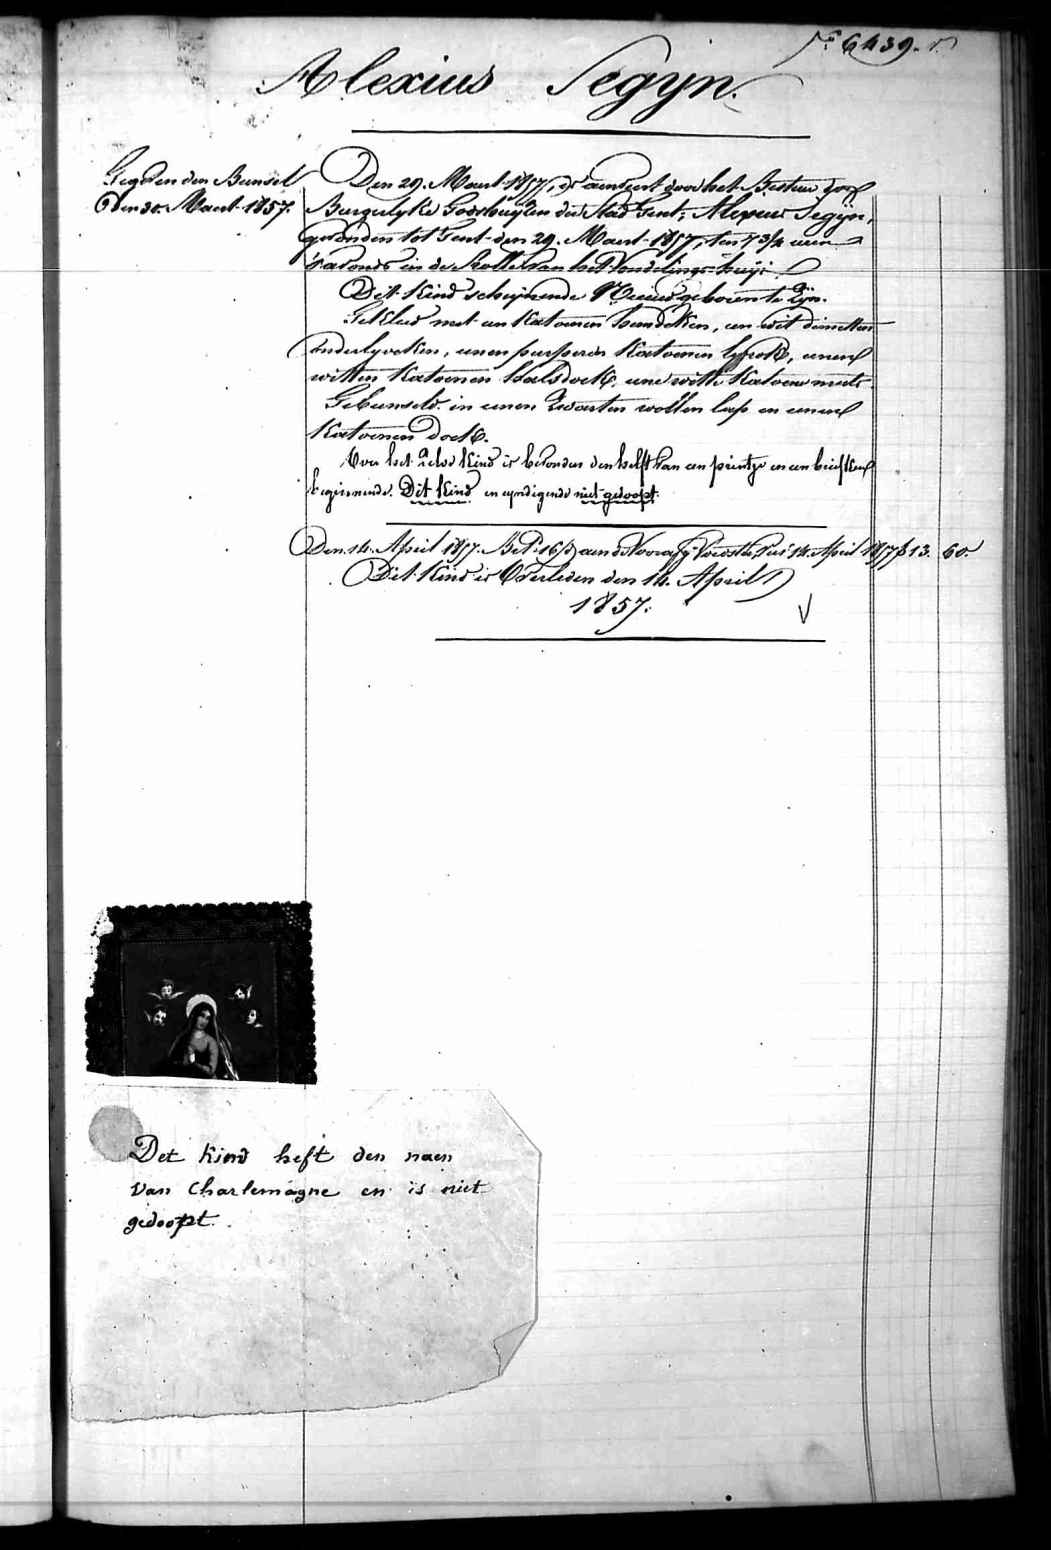 N.º 6439.
Alexius Segyn.
Gegeven den Bunsel
Den 30. Maart 1857.
Den 29. Maart 1857, is aenveert door het Bestuer der
Burgerlyke Godshuyzen der Stad Gent: Alexius Segyn,
gevonden tot Gent den 29. Maart 1857, ten 7 3/4 uren
's avonds in de Rolle van het Vondelings-huys.
Dit Kind schynende Nieuwgeboren te Zyn.
Gekleed met een Katoenen hemdeken, een wit dimetten
onderlyveken, eenen purperen Katoenen lyfrok, eenen
witten Katoenen halsdoek, eene witte Katoene muts.
Gebunseld in eenen Zwarten wollen lap en eenen
Katoenen doek.
Over het Zelve Kind is bevonden den helft van een printje en een briefken
beginnende. Dit Kind en eyndigende niet gedoopt.
Den 14. April 1857. Bet. 16 d aen de Voorz. Voedster, tus 14. April 1857 f 13. 60
Dit Kind is Overleden den 14. April
1857.
Det kind heft den naen
van Charlemagne en is niet
gedoopt.